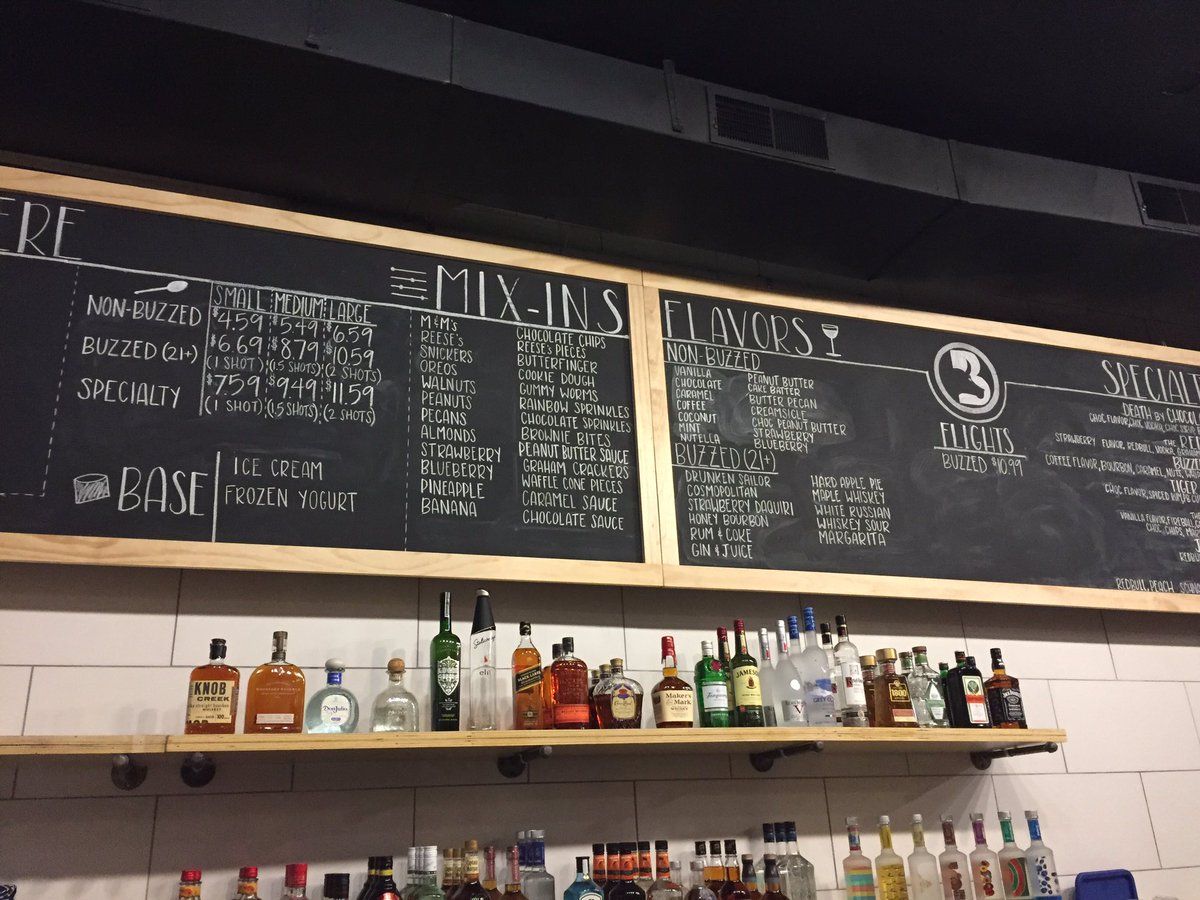 ERE
SMALL MEDIUM LARGE
NON-BUZZED $4.59 $5.49 $6.59
BUZZED (21+) $6.69 $8.79 $10.59
(1 SHOT) (1.5 SHOTS) (2 SHOTS)
SPECIALTY $7.59 $9.49 $11.59
(1 SHOT) (1.5 SHOTS) (2 SHOTS)
BASE
ICE CREAM
FROZEN YOGURT
MIX-INS
M&M's
REESE'S
SNICKERS
OREOS
WALNUTS
PEANUTS
PECANS
ALMONDS
STRAWBERRY
BLUEBERRY
PINEAPPLE
BANANA
CHOCOLATE CHIPS
REESE'S PIECES
BUTTERFINGER
COOKIE DOUGH
GUMMY WORMS
RAINBOW SPRINKLES
CHOCOLATE SPRINKLES
BROWNIE BITES
PEANUT BUTTER SAUCE
GRAHAM CRACKERS
WAFFLE CONE PIECES
CARAMEL SAUCE
CHOCOLATE SAUCE
FLAVORS
NON-BUZZED
VANILLA
CHOCOLATE
CARAMEL
COFFEE
COCONUT
MINT
NUTELLA
PEANUT BUTTER
CAKE BATTER
BUTTER PECAN
CREAMSICLE
CHOC PEANUT BUTTER
STRAWBERRY
BLUEBERRY
BUZZED (21+)
DRUNKEN SAILOR
COSMOPOLITAN
STRAWBERRY DAQUIRI
HONEY BOURBON
RUM & COKE
GIN & JUICE
HARD APPLE PIE
MAPLE WHISKEY
WHITE RUSSIAN
WHISKEY SOUR
MARGARITA
3
FLIGHTS
BUZZED $10.99
SPECIALT
DEATH BY CHOCO
CHOC FLAVOR, CHOC VODKA, CHOC SYRUP
THE
STRAWBERRY FLAVOR, REDBULL, VODKA,
BUZZE
COFFEE FLAVOR, BOURBON, CARAMEL,
TIGER
CHOC FLAVOR, SPICED RUM,
VANILLA FLAVOR, FIREBALL
CHOC. CHIPS,
REDBULL, PEACH
KNOB
CREEK
100
Don Julio
elit
BLACK LABEL
Maker's
Mark
Tanqueray
JAMESON
V
1800
JACK DANIEL'S